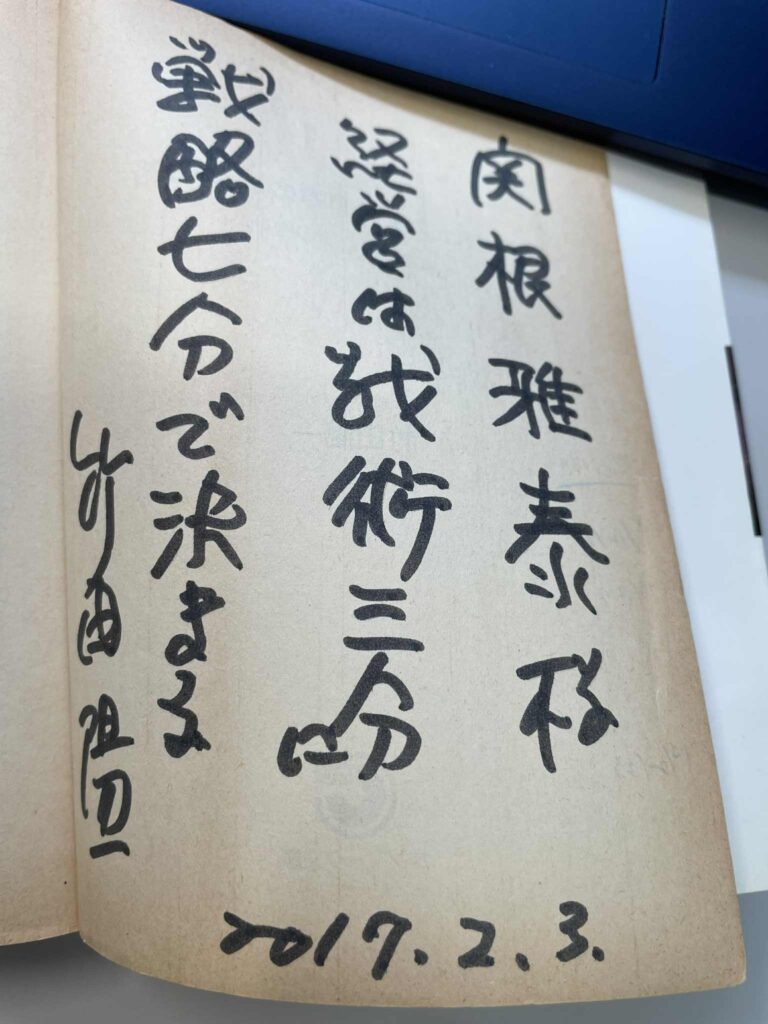 関根雅泰様
経営は戦術三分
戦略七分で決まる
竹田陽一
2017.2.3.